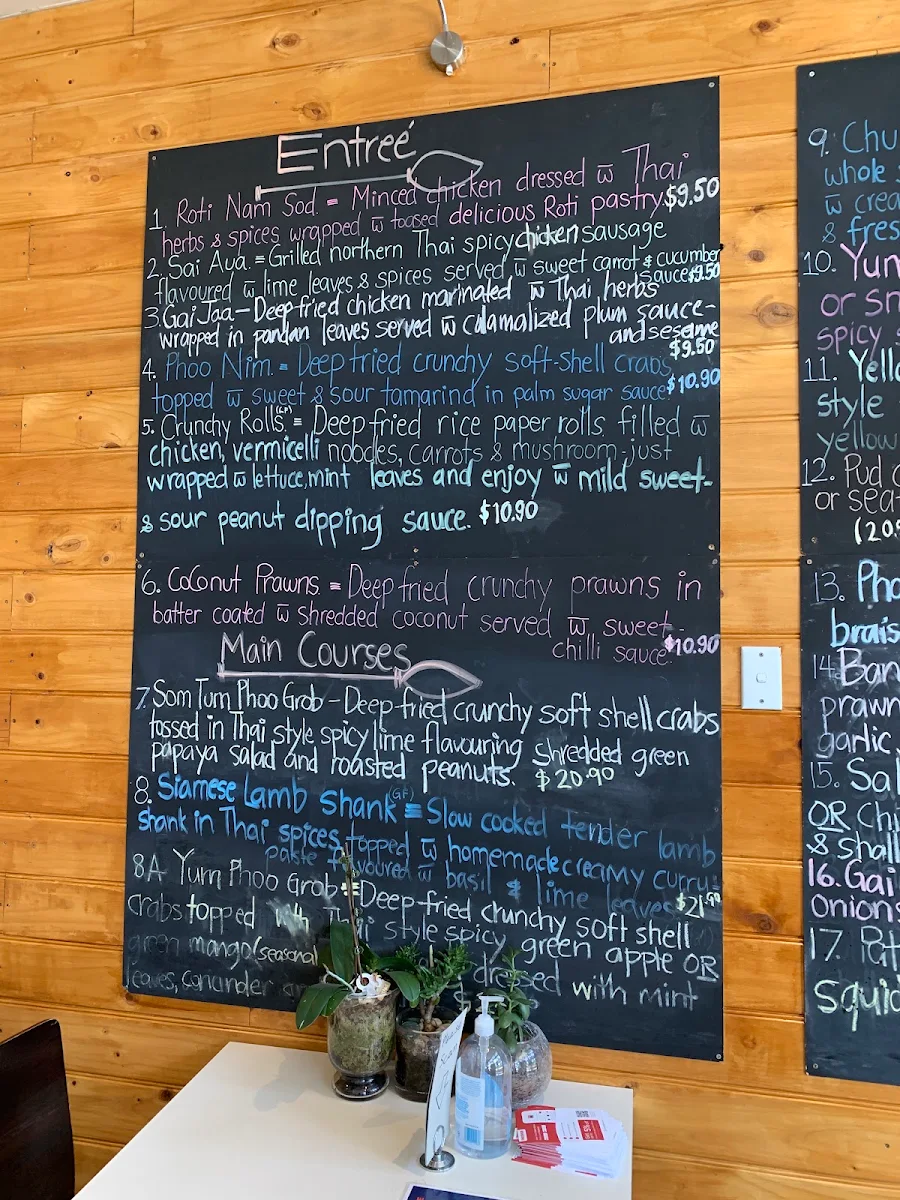 Entreé
1. Roti Nam Sod. = Minced chicken dressed w̅ Thai
herbs & spices wrapped w̅ toased delicious Roti pastry $9.50
2. Sai Aua. = Grilled northern Thai spicy chicken sausage
flavoured w̅ lime leaves & spices served w̅ sweet carrot & cucumber
sauce $9.50
3. Gai Jaa - Deep fried chicken marinated w̅ Thai herbs
wrapped in pandan leaves served w̅ calamalized plum sauce-
and sesame
$9.50
4. Phoo Nim. = Deep fried crunchy soft-shell crabs
topped w̅ sweet & sour tamarind in palm sugar sauce $10.90
5. Crunchy Rolls. (GF) = Deep fried rice paper rolls filled w̅
chicken, vermicelli noodles, carrots & mushroom-just
wrapped w̅ lettuce, mint leaves and enjoy w̅ mild sweet-
& sour peanut dipping sauce. $10.90
6. Coconut Prawns. = Deep fried crunchy prawns in
batter coated w̅ shredded coconut served w̅ sweet
chilli sauce. $10.90
Main Courses
7. Som Tum Phoo Grob - Deep-fried crunchy soft shell crabs
tossed in Thai style spicy lime flavouring shredded green
papaya salad and roasted peanuts. $20.90
8. Siamese Lamb Shank (GF) = Slow cooked tender lamb
shank in Thai spices topped w̅ homemade creamy curry-
paste flavoured w̅ basil & lime leaves $21.90
8A Yum Phoo Grob = Deep-fried crunchy soft shell
crabs topped with Thai style spicy green apple OR
green mango (seasonal) & dressed with mint
leaves, coriander
9. Chu
whole
w̅ crea
& fres
10. Yum
or sn
spicy
11. Yello
style
yellow
12. Pud
or sea
(20.9
13. Pho
brais
14. Ban
prawn
garlic
15. Sal
OR Chi
& shall
16. Gai
onions
17. Pat
squid